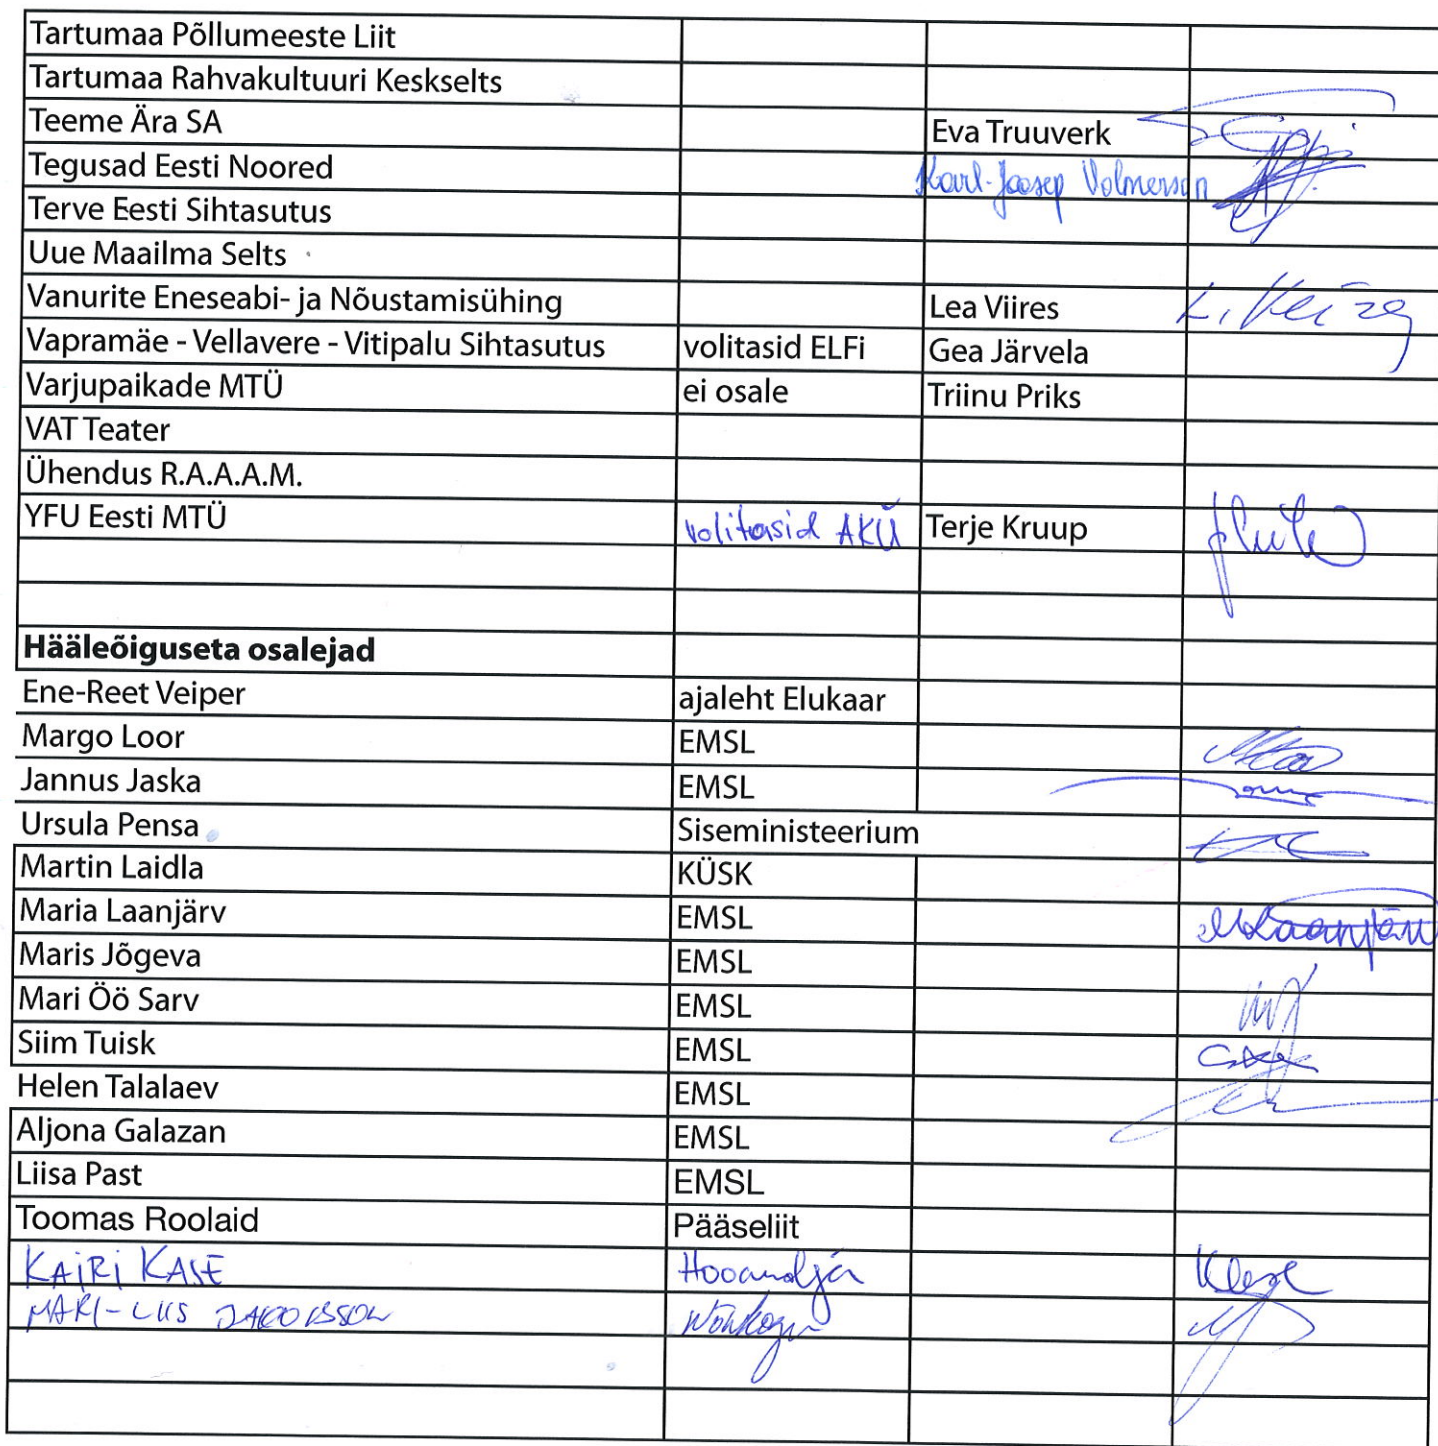 Tartumaa Põllumeeste Liit
Tartumaa Rahvakultuuri Keskselts
Teeme Ära SA Eva Truuverk
Tegusad Eesti Noored Karl-Joosep Volmerson
Terve Eesti Sihtasutus
Uue Maailma Selts
Vanurite Eneseabi- ja Nõustamisühing Lea Viires
Vapramäe - Vellavere - Vitipalu Sihtasutus volitasid ELFi Gea Järvela
Varjupaikade MTÜ ei osale Triinu Priks
VAT Teater
Ühendus R.A.A.A.M.
YFU Eesti MTÜ volitasid AKÜ Terje Kruup
Hääleõiguseta osalejad
Ene-Reet Veiper ajaleht Elukaar
Margo Loor EMSL
Jannus Jaska EMSL
Ursula Pensa Siseministeerium
Martin Laidla KÜSK
Maria Laanjärv EMSL MLaanjärv
Maris Jõgeva EMSL
Mari Öö Sarv EMSL
Siim Tuisk EMSL
Helen Talalaev EMSL
Aljona Galazan EMSL
Liisa Past EMSL
Toomas Roolaid Pääseliit
KAIRI KASE Hooandja
MARI-LIIS JAKOBSSON Nõukogu